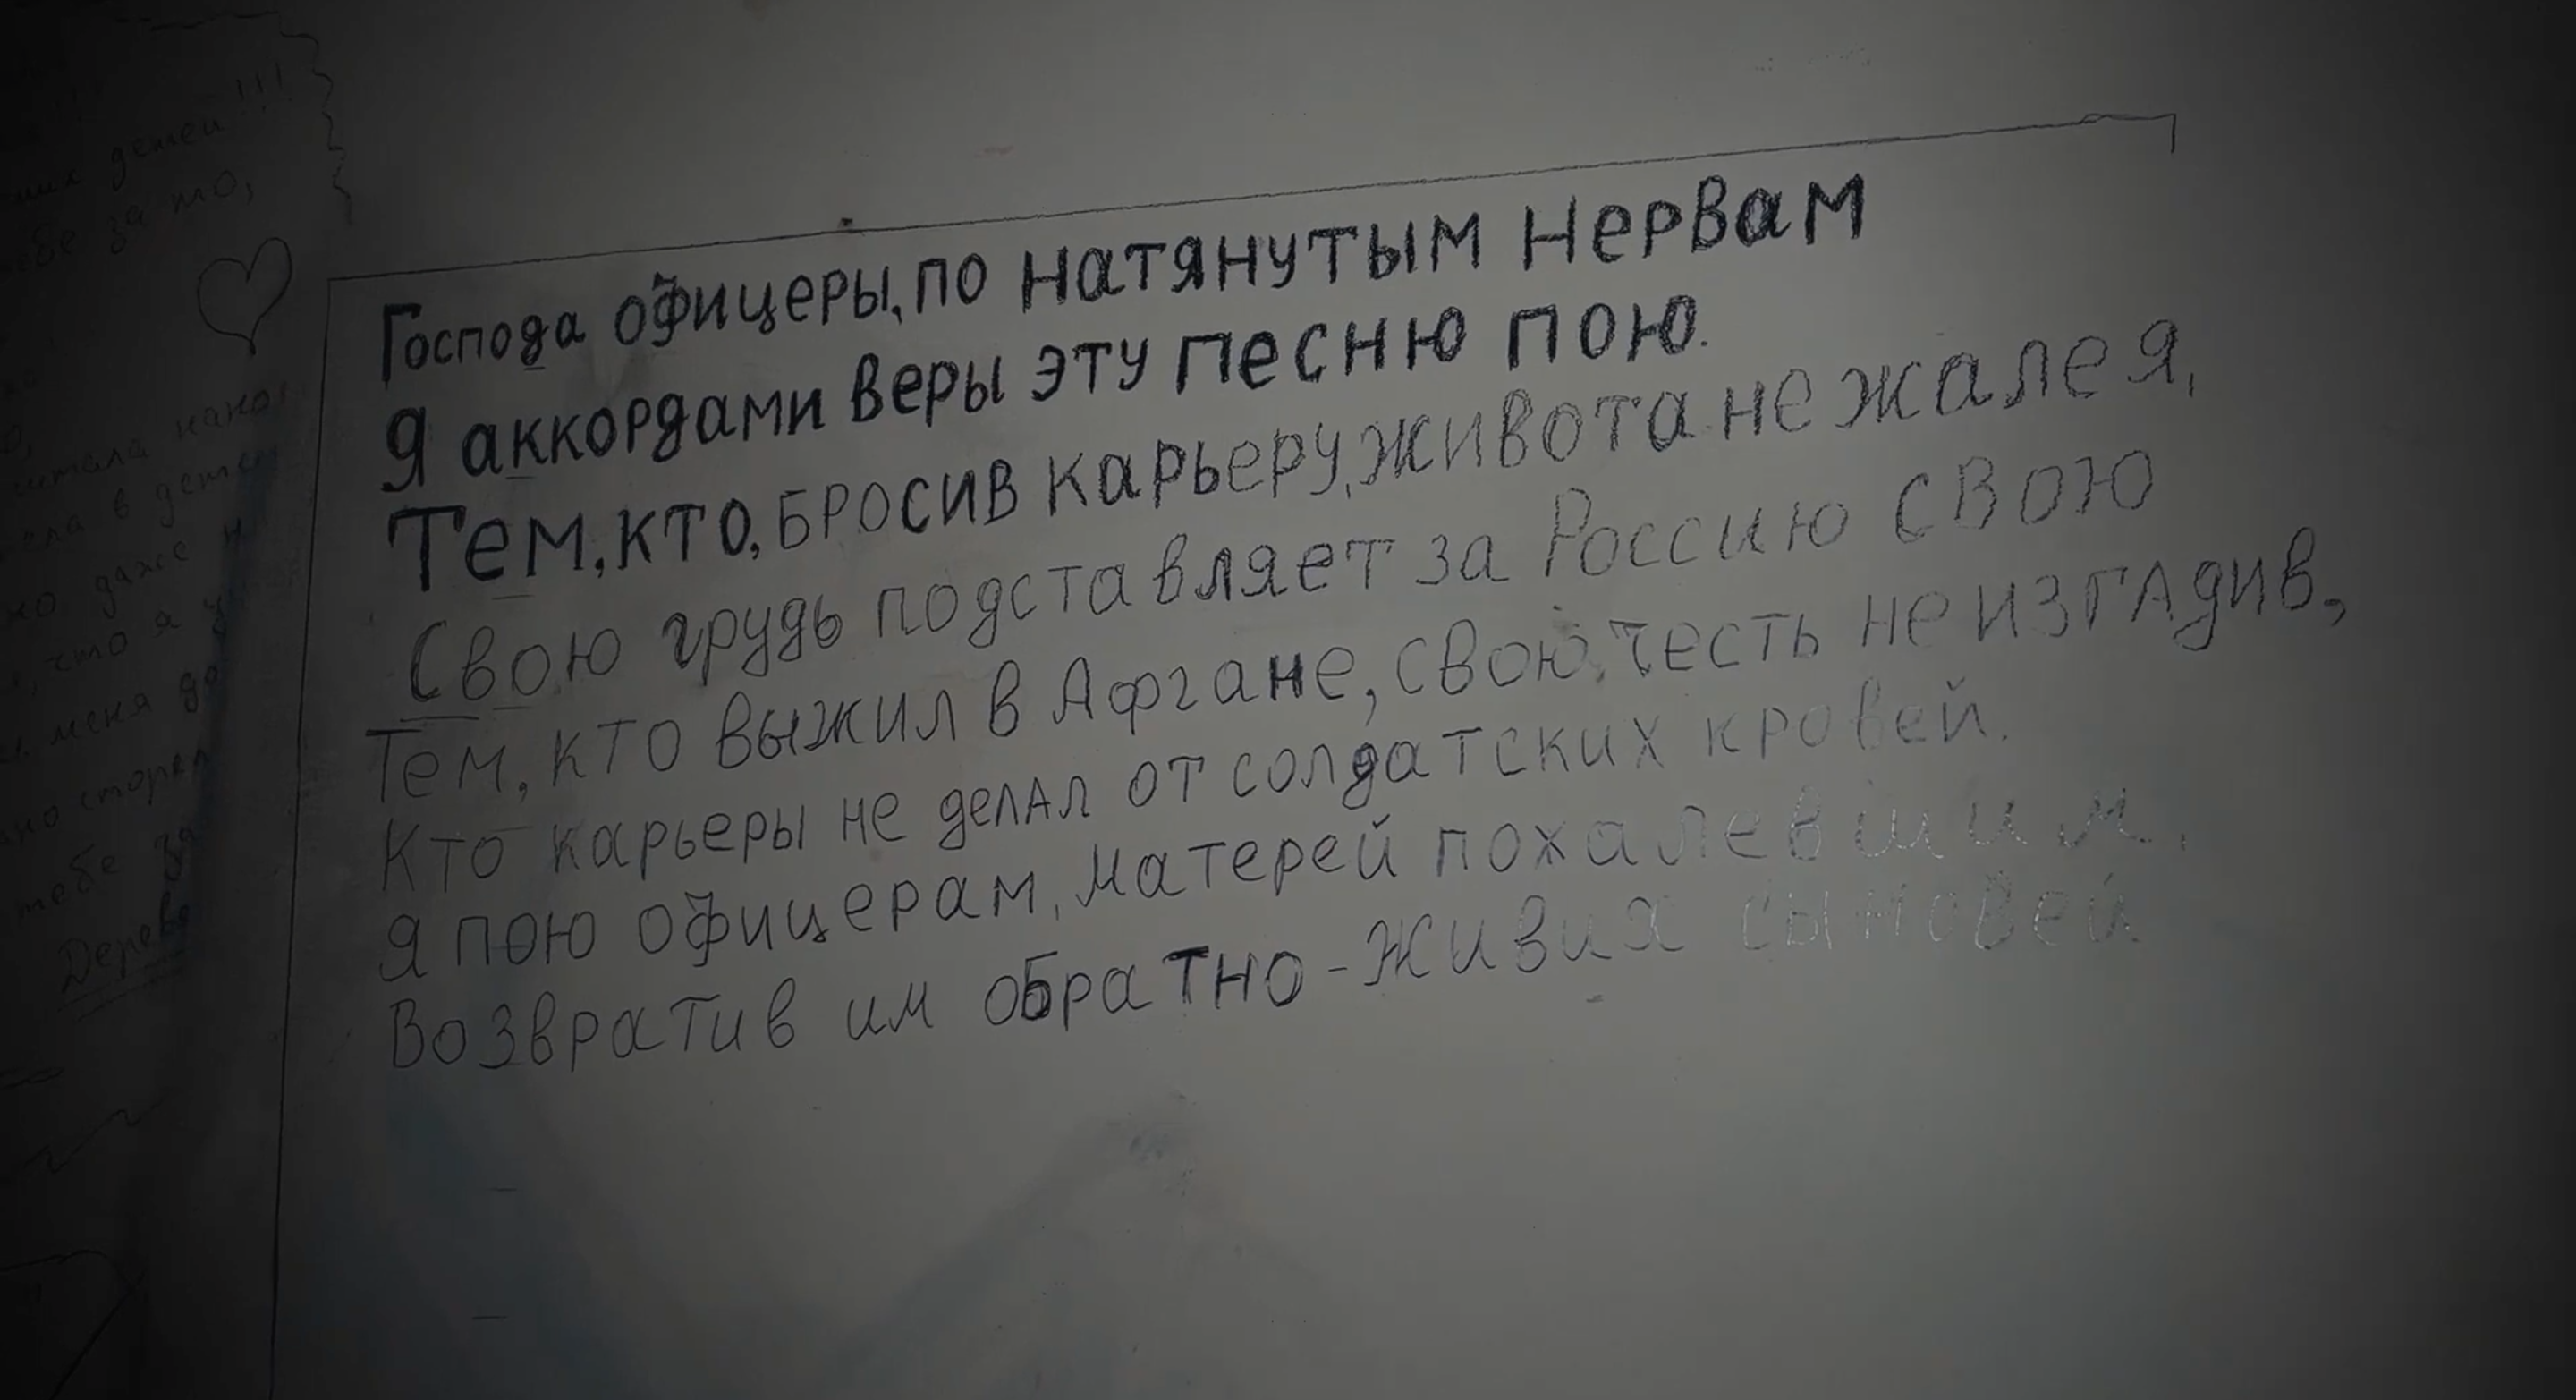 детей!!!
за то,
Господа офицеры, по натянутым нервам
Я аккордами веры эту песню пою.
Тем, кто, бросив карьеру, живота не жалея,
Свою грудь подставляет за Россию свою
Тем, кто выжил в Афгане, свою честь не изгадив,
Кто карьеры не делал от солдатских кровей.
Я пою офицерам, матерей похалевшим,
Возвратив им обратно - живих сыновей
в
но даже н
, что я
меня до
тебе за